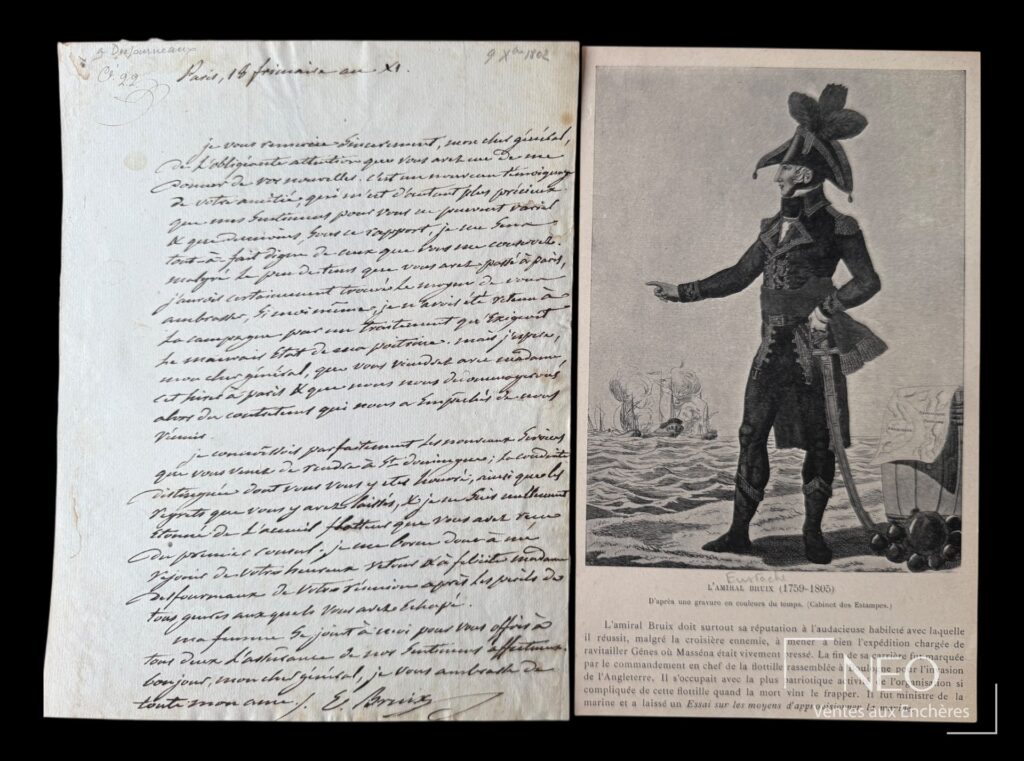 g Desfourneaux
Cr. 22
9 Xbre 1802
Paris, 18 frimaise an XI.
je vous remercie sincerement, mon cher général,
de l'obligeante attention que vous avez eue de me
donner de vos nouvelles. c'est un nouveau témoignage
de votre amitié, qui m'est d'autant plus précieux
que mes sentimens pour vous ne peuvent varier
& que dumoins, sous ce rapport, je me sens
tout-à-fait digne de ceux que vous me conservez.
malgré le peu de tems que vous avez passé à paris,
j'aurois certainement trouvé le moyen de vous
embrasser, si moi même, je n'avois été retenu à
la campagne par un traitement qu'exigeoit
le mauvais état de ma poitrine. mais j'espère,
mon cher général, que vous viendrez avec madame,
cet hiver à paris & que nous nous dédommagerons
alors du contretems qui nous a empêchés de nous
réunir.
je connoissois parfaitement les nouveaux services
que vous venez de rendre à St. domingue; la conduite
distinguée dont vous vous y etes honoré, ainsi que les
regrets que vous y avez laissés, & je ne suis nullement
étonné de l'accueil flatteur que vous avez reçu
du premier consul. je me borne donc à me
rejouir de votre heureux retour & à féliciter madame
Desfourneaux de votre réunion après les périls de
tous genres auxquels vous avez échapé.
ma femme se joint à moi pour vous offrir à
tous deux l'assurance de nos sentimens affectueux.
toujours, mon cher général, je vous embrasse de
toute mon ame. E Bruix
Eustache
L'AMIRAL BRUIX (1759-1805)
D'après une gravure en couleurs du temps. (Cabinet des Estampes.)
L'amiral Bruix doit surtout sa réputation à l'audacieuse habileté avec laquelle
il réussit, malgré la croisière ennemie, à mener à bien l'expédition chargée de
ravitailler Gênes où Masséna était vivement pressé. La fin de sa carrière fut marquée
par le commandement en chef de la flottille rassemblée à Boulogne pour l'invasion
de l'Angleterre. Il s'occupait avec la plus patriotique activité de l'organisation si
compliquée de cette flottille quand la mort vint le frapper. Il fut ministre de la
marine et a laissé un Essai sur les moyens d'approvisionner la marine.
NEO
Ventes aux Enchères